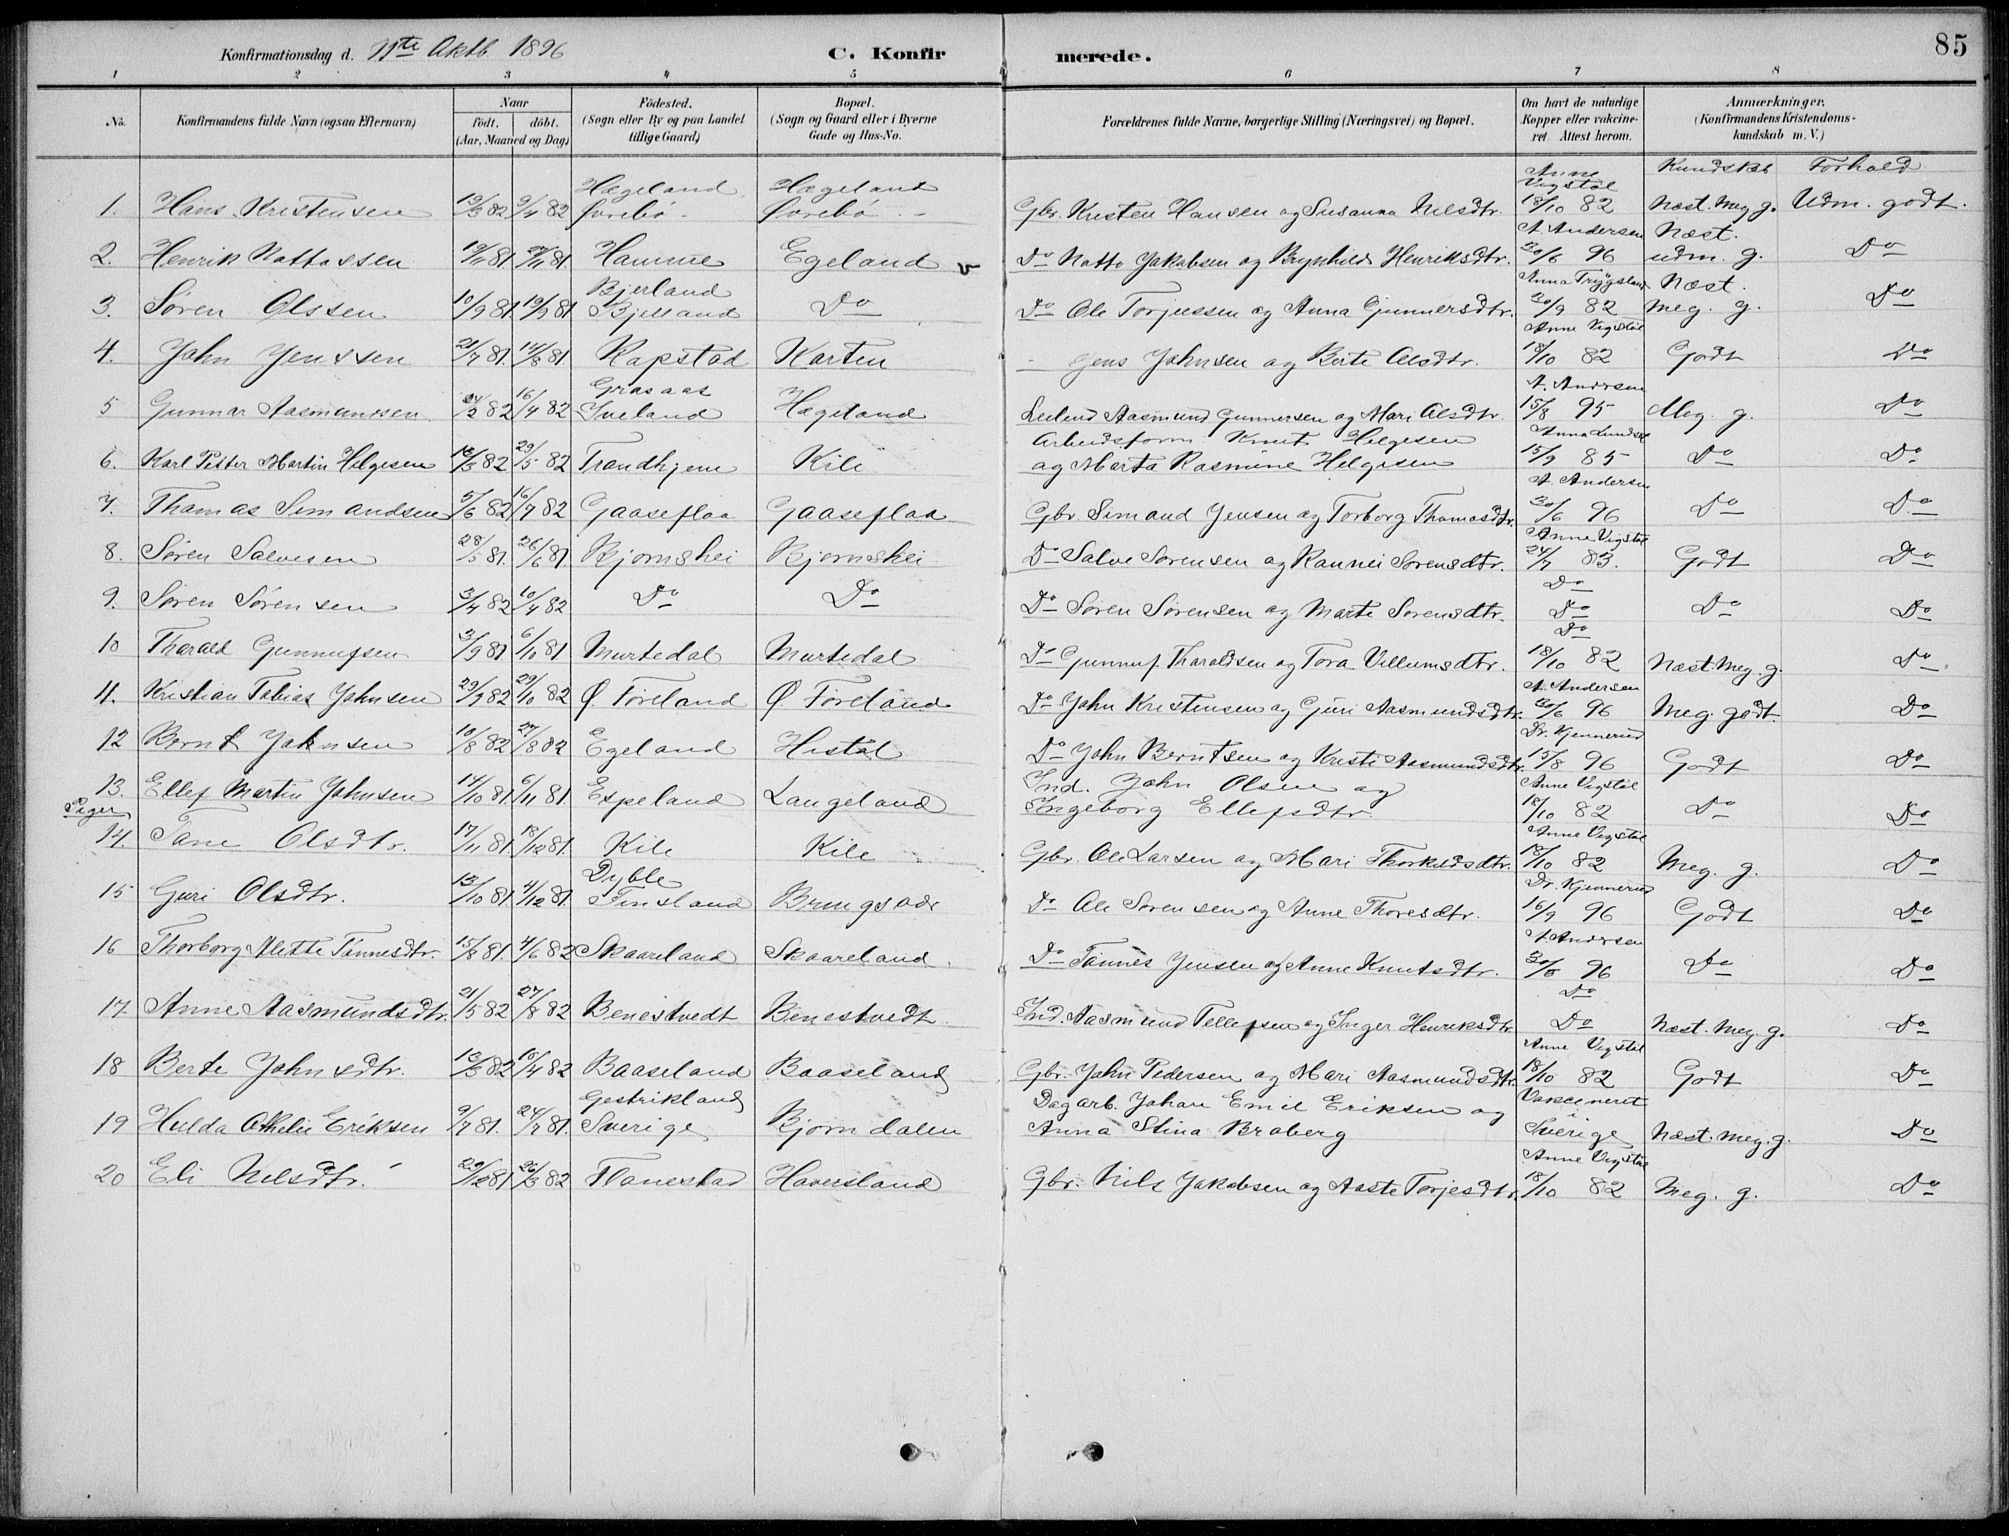 Konfirmationsdag d. 11te Oktb. 1896 C. Konfirmerede. 85
1 2 3 4 5 6 7 8
No. Konfirmandens fulde Navn (ogsaa Efternavn) Naar födt. döbt. (Aar, Maaned og Dag) Födested. (Sogn eller By og paa Landet tillige Gaard) Bopæl. (Sogn og Gaard eller i Byerne Gade og Hus-No. Forældrenes fulde Navne, borgerlige Stilling (Næringsvei) og Bopæl. Om havt de naturlige Kopper eller vakcineret. Attest herom. Anmærkninger. (Konfirmandens Kristendomskundskab m. V.)
Kundskb Forhold
1. Hans Kristensen 19/3 82 9/4 82 Hægeland Øvrebö Hægeland Øvrebö Gbr. Kristen Hansen og Susanna Nilsdtr. Anne Vigstöl 18/10 82 Næst. Meg g. Udm. godt.
2. Henrik Nattossen 19/11 81 27/11 81 Homme Egeland Do Notto Jakobsen og Brynhild Henriksdtr. A. Andersen 30/6 96 Næst. udm. g. Do
3. Søren Olssen 10/9 81 19/9 81 Bjerland Bjelland Do Do Ole Torjussen og Anna Gunnersdtr. Anna Trygsland 20/9 82 Næst. meg. g. Do
4. John Jenssen 21/7 81 14/8 81 Rapstad Karten Jens Johnsen og Berte Olsdtr. Anne Vigstöl 18/10 82 Godt Do
5 Gunnar Aasmundsen 24/2 82 16/4 82 Grosaas Iveland Hægeland Leilend Aasmund Gunnersen og Mari Olsdtr. A. Andersen 15/8 95 Meg. g. Do
6. Karl Petter Martin Helgesen 16/3 82 29/5 82 Trondhjem Kile Arbeidsform Knut Helgesen og Marta Rasmine Helgesen Anna Lundstl 15/9 85 Do Do
7. Thomas Simondsen 5/6 82 16/7 82 Gaaseflaa Gaaseflaa Gbr. Simond Jensen og Torborg Thomasdtr. A. Andersen 30/6 96 Do Do
8. Søren Salvesen 28/5 81. 26/6 81 Bjørnshei Bjørnshei Do Salve Sørensen og Rannei Sørensdtr. Anne Vigstöl 24/7 83. Godt Do
9. Søren Sørensen 3/4 82 10/4 82 Do Do Do Søren Sørensen og Marte Sørensdtr. Do Do Do Do
10 Tharald Gunnufsen 3/9 81 6/10 81 Murtedal Murtedal Do Gunnuf Tharaldsen og Tora Villumsdtr. Do 18/10 82 Næst. Meg. g. Do
11. Kristian Tobias Johnsen 29/9 82 29/10 82 Ø Føreland Ø Føreland Do John Kristensen og Guri Aasmundsdtr. A. Andersen 30/6 96 Meg. godt Do
12 Bernt Johnsen 10/8 82 27/8 82 Egeland Histöl Do John Berntsen og Kristi Aasmundsdtr. Dr. Kjennerud 15/8 96 Godt Do
13. Ellef Martin Johnsen 14/10 81 6/11 81. Espeland Langeland Ind. John Olsen og Ingeborg Ellefsdtr. Anne Vigstöl 18/10 82 Do Do
Piger
14 Tane Olsdtr. 17/11 81 18/12 81. Kile Kile Gbr. Ole Larsen og Mari Thorkildsdtr. Anne Vigstöl 18/10 82 Meg. g. Do
15 Guri Olsdtr. 13/10 81 4/12 81. Dyble Finsland Brungsdr Do Ole Sørensen og Anne Thoresdtr. Dr. Kjennerud 16/9 96 Godt Do
16 Thorborg Mette Tønnesdtr. 15/8 81. 4/6 82 Skaareland Skaareland. Do Tønnes Jensen og Anne Knutsdtr. A. Andersen 30/6 96 Do Do
17. Anne Aasmundsdtr. 21/5 82 27/8 82 Benestvedt Benestvedt Ind. Aasmund Tellefsen og Inger Henriksdtr. Do Do Næst. Meg. g. Do
18 Berte Johnsdtr. 13/3 82 10/4 82 Baaseland Baaseland Gbr. John Pedersen og Mari Aasmundsdtr. Anne Vigstöl 18/10 82 Godt Do
19 Hulda Othelie Eriksen 9/7 81. 24/7 81. Gestrikland Sverige Bjørndalen Dagarb. Johan Emil Eriksen og Anna Stina Broberg Vakcineret i Sverige Næst. Meg. g. Do
20 Eli Nilsdtr. 29/12 81 26/3 82 Flonestad Haversland Gbr. Nils Jakobsen og Aaste Torjesdtr. Anne Vigstöl 18/10 82 Meg. g. Do